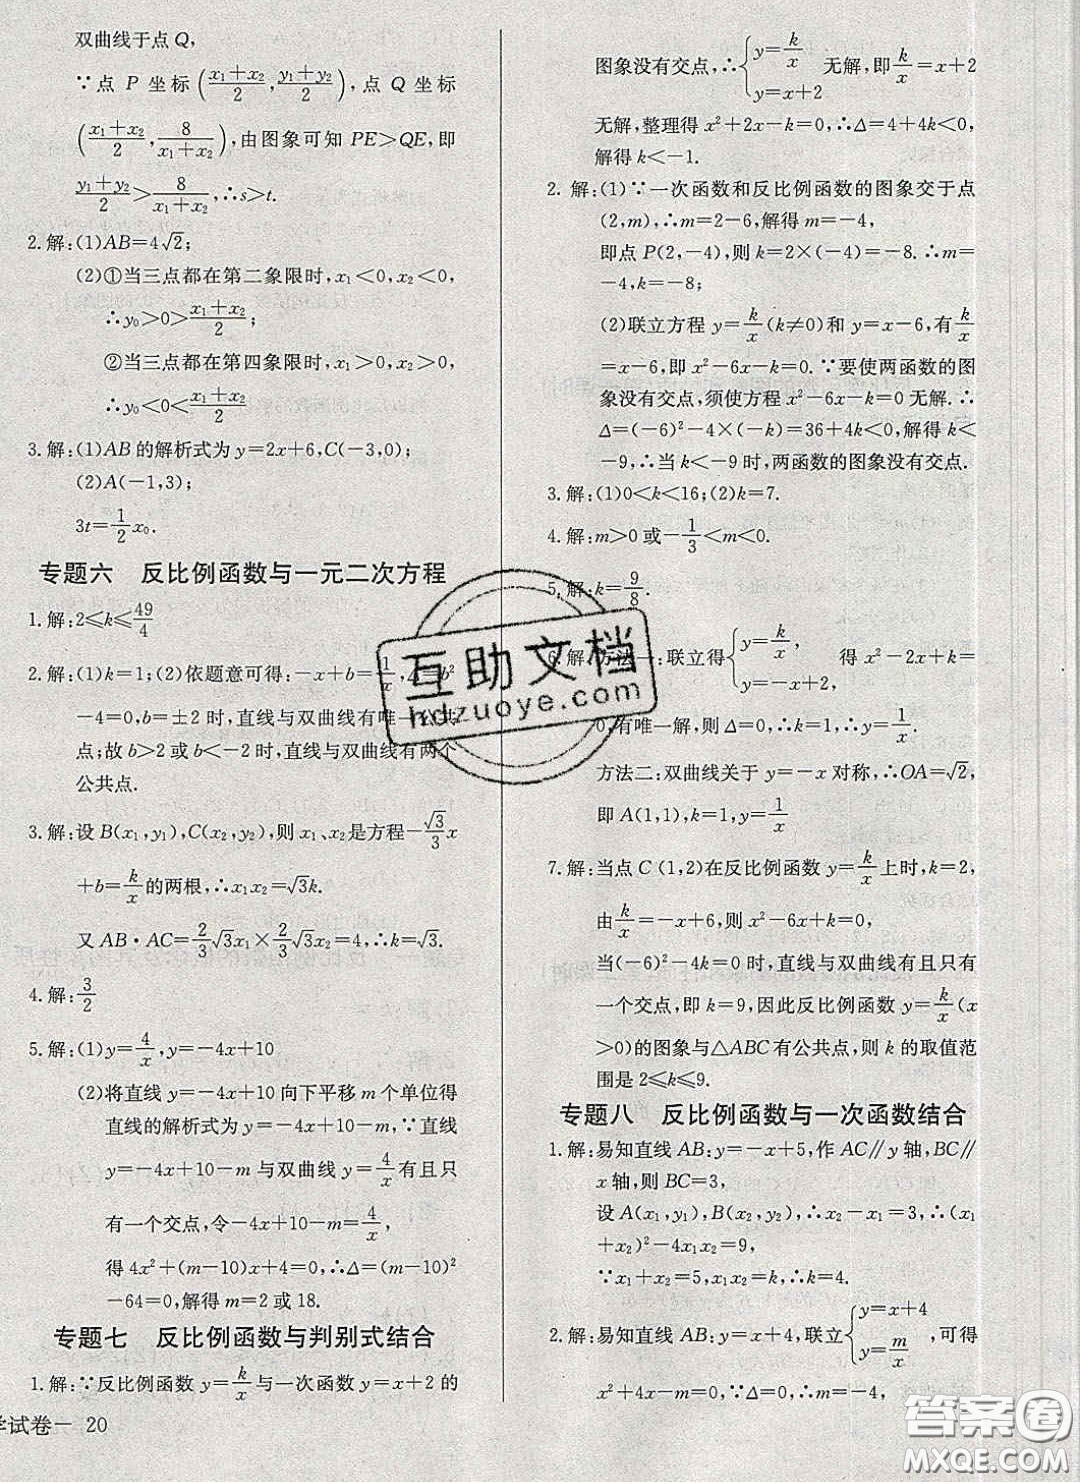 双曲线于点Q,
∵点 P 坐标 ((x₁+x₂)/2, (y₁+y₂)/2), 点 Q 坐标
((x₁+x₂)/2, 8/(x₁+x₂)), 由图象可知 PE>QE, 即
(y₁+y₂)/2 > 8/(x₁+x₂), ∴s>t.
2.解:(1)AB=4√2;
(2)①当三点都在第二象限时, x₁<0, x₂<0,
∴y₀>0>(x₁+x₂)/2;
②当三点都在第四象限时, x₁>0, x₂>0,
∴y₀<0<(x₁+x₂)/2.
3.解:(1)AB 的解析式为 y=2x+6, C(-3,0);
(2)A(-1,3);
3t=1/2 x₀.
专题六 反比例函数与一元二次方程
1.解:2≤k≤49/4
2.解:(1)k=1;(2)依题意可得:-x+b=1/x, Δ=b²
-4=0, b=±2 时, 直线与双曲线有唯一公共
点;故 b>2 或 b<-2 时, 直线与双曲线有两个
公共点.
3.解:设 B(x₁,y₁), C(x₂,y₂), 则 x₁、x₂是方程-√3/3 x
+b=k/x 的两根, ∴x₁x₂=√3k.
又 AB·AC=2/3√3x₁×2/3√3x₂=4, ∴k=√3.
4.解:3/2
5.解:(1)y=4/x, y=-4x+10
(2)将直线 y=-4x+10 向下平移 m 个单位得
直线的解析式为 y=-4x+10-m,
∵直线 y=-4x+10-m 与双曲线 y=4/x 有且只
有一个交点, 令-4x+10-m=4/x,
得 4x²+(m-10)x+4=0, ∴Δ=(m-10)²
-64=0, 解得 m=2 或 18.
专题七 反比例函数与判别式结合
1.解:∵反比例函数 y=k/x 与一次函数 y=x+2 的
学试卷— 20
图象没有交点, ∴{y=k/x y=x+2 无解, 即 k/x=x+2
无解, 整理得 x²+2x-k=0, ∴Δ=4+4k<0,
解得 k<-1.
2.解:(1)∵一次函数和反比例函数的图象交于点
(2,m), ∴m=2-6, 解得 m=-4,
即点 P(2,-4), 则 k=2×(-4)=-8. ∴m=
-4, k=-8;
(2)联立方程 y=k/x(k≠0)和 y=x-6, 有 k/x
=x-6, 即 x²-6x-k=0. ∵要使两函数的图
象没有交点, 须使方程 x²-6x-k=0 无解. ∴
Δ=(-6)²-4×(-k)=36+4k<0, 解得 k<
-9, ∴当 k<-9 时, 两函数的图象没有交点.
3.解:(1)0<k<16;(2)k=7.
4.解:m>0 或-1/3<m<0.
5.解:k=9/8.
6.解:方法一:联立得{y=k/x, y=-x+2, 得 x²-2x+k=
0, 有唯一解, 则 Δ=0, ∴k=1, ∴y=1/x.
方法二:双曲线关于 y=-x 对称, ∴OA=√2,
即 A(1,1), ∴y=1/x
7.解:当点 C (1,2)在反比例函数 y=k/x 上时, k=2,
由 k/x=-x+6, 则 x²-6x+k=0,
当(-6)²-4k=0 时, 直线与双曲线有且只有
一个交点, 即 k=9, 因此反比例函数 y=k/x (x
>0)的图象与△ABC 有公共点, 则 k 的取值范
围是 2≤k≤9.
专题八 反比例函数与一次函数结合
1.解:易知直线 AB:y=-x+5, 作 AC∥y 轴, BC∥
x 轴, 则 BC=3,
设 A(x₁,y₁), B(x₂,y₂), ∴x₂-x₁=3, ∴(x₁
+x₂)²-4x₁x₂=9,
∵x₁+x₂=5, x₁x₂=k, ∴k=4.
2.解:易知直线 AB:y=x+4, 联立{y=x+4 y=m/x, 可得
x²+4x-m=0, ∴x₁+x₂=-4, x₁x₂=-m,
互助文档
hdzuoye.com
答案圈
MXQE.COM